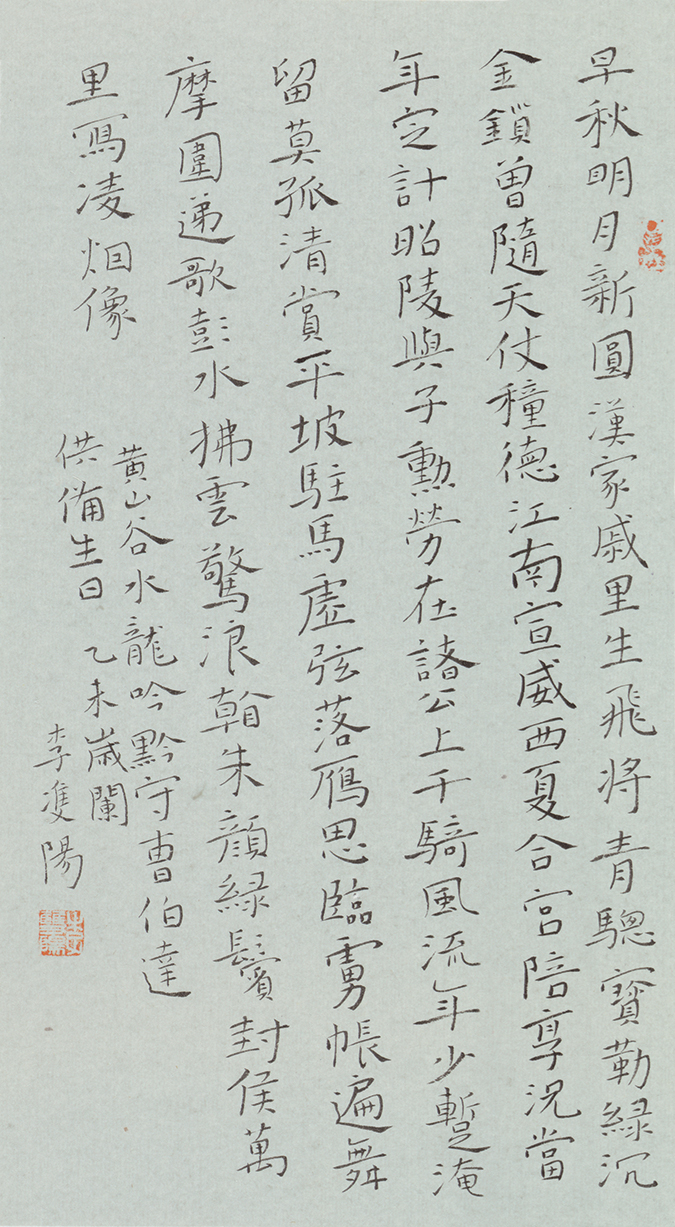 早秋明月新圓漢家戚里生飛將青驄寶勒綠沉
金鎖曾隨天仗種德江南宣威西夏合宮陪享況當
年定計昭陵與子勳勞在諸公上千騎風流年少暫淹
留莫孤清賞平坡駐馬虛弦落雁思臨虜帳遍舞
摩圍递歌彭水拂雲驚浪翰朱顏綠鬢封侯萬
里寫凌烟像
黃山谷水龍吟黔守曹伯達
供備生日 乙未歲闌
李雙陽